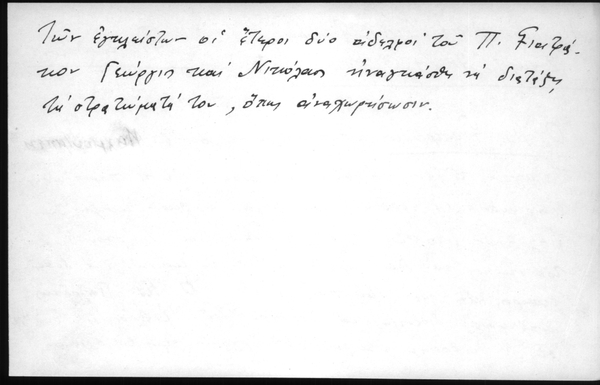 τῶν ἐγκλείστων οἱ ἕτεροι δύο ἀδελφοί τοῦ Π. Γιατρά-
κου Γεώργιος καί Νικόλαος ἠναγκάσθη νά διατάξῃ
τά στρατεύματά του, ὅπως ἀναχωρήσωσιν.